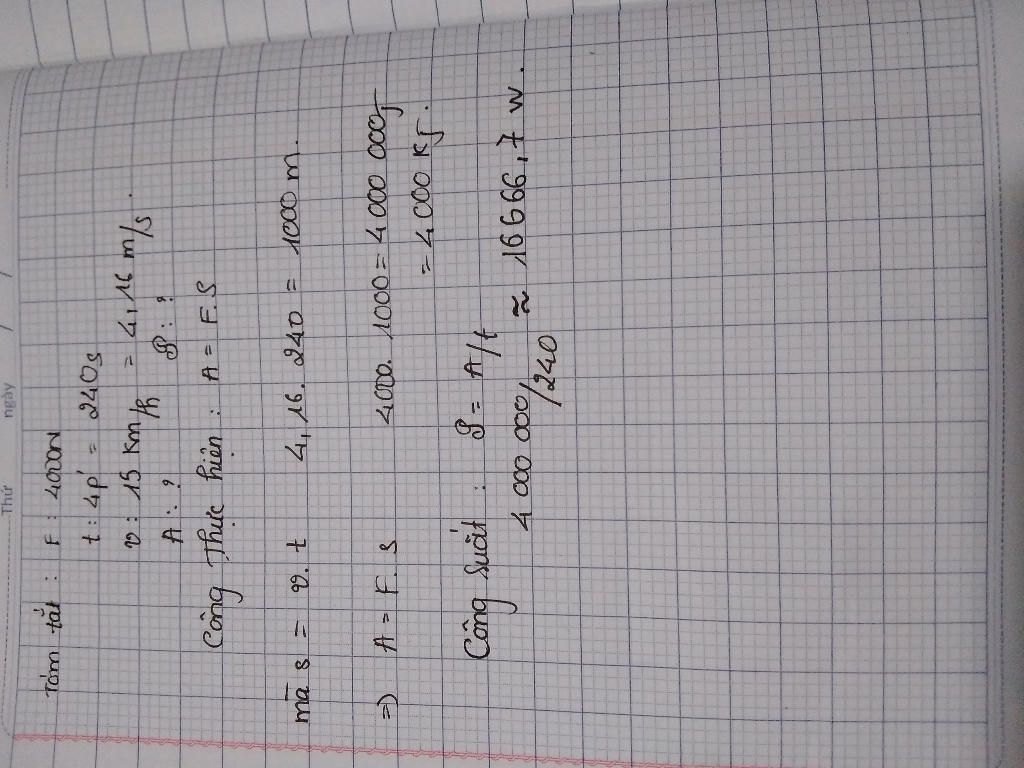 Thứ ngày / /
Tóm tắt : F : 4000N
t : 4p' = 240s
v : 15 km/h = 4,16 m/s.
A : ? P : ?
Công thực hiện : A = F.S
mà s = v. t 4,16. 240 = 1000 m.
=) A = F. s 4000. 1000 = 4 000 000J
= 4000 KJ.
Công suất : P = A/t
4 000 000/240 ≈ 16666,7 w.